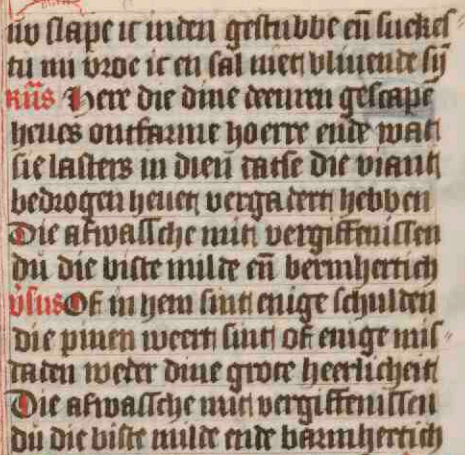 nv slape ic inden gestubbe eñ suekes
tu mi vroe ic en sal niet bliuende sÿ
R̃us Here die dine creturen gescape
heues ontfarme hoerre ende wat
sie lasters in dien datse die viant
bedrogen heuet vergadert hebben
Die afwassche mit vergiffenissen
du die biste milde eñ bermhertich
v̓sus Of in hem sint enige schulden
die pinen weert sint of enige mis〃
daden weder dine grote heerlicheit
Die afwassche mit vergiffenissen
du die biste milde ende barmhertich